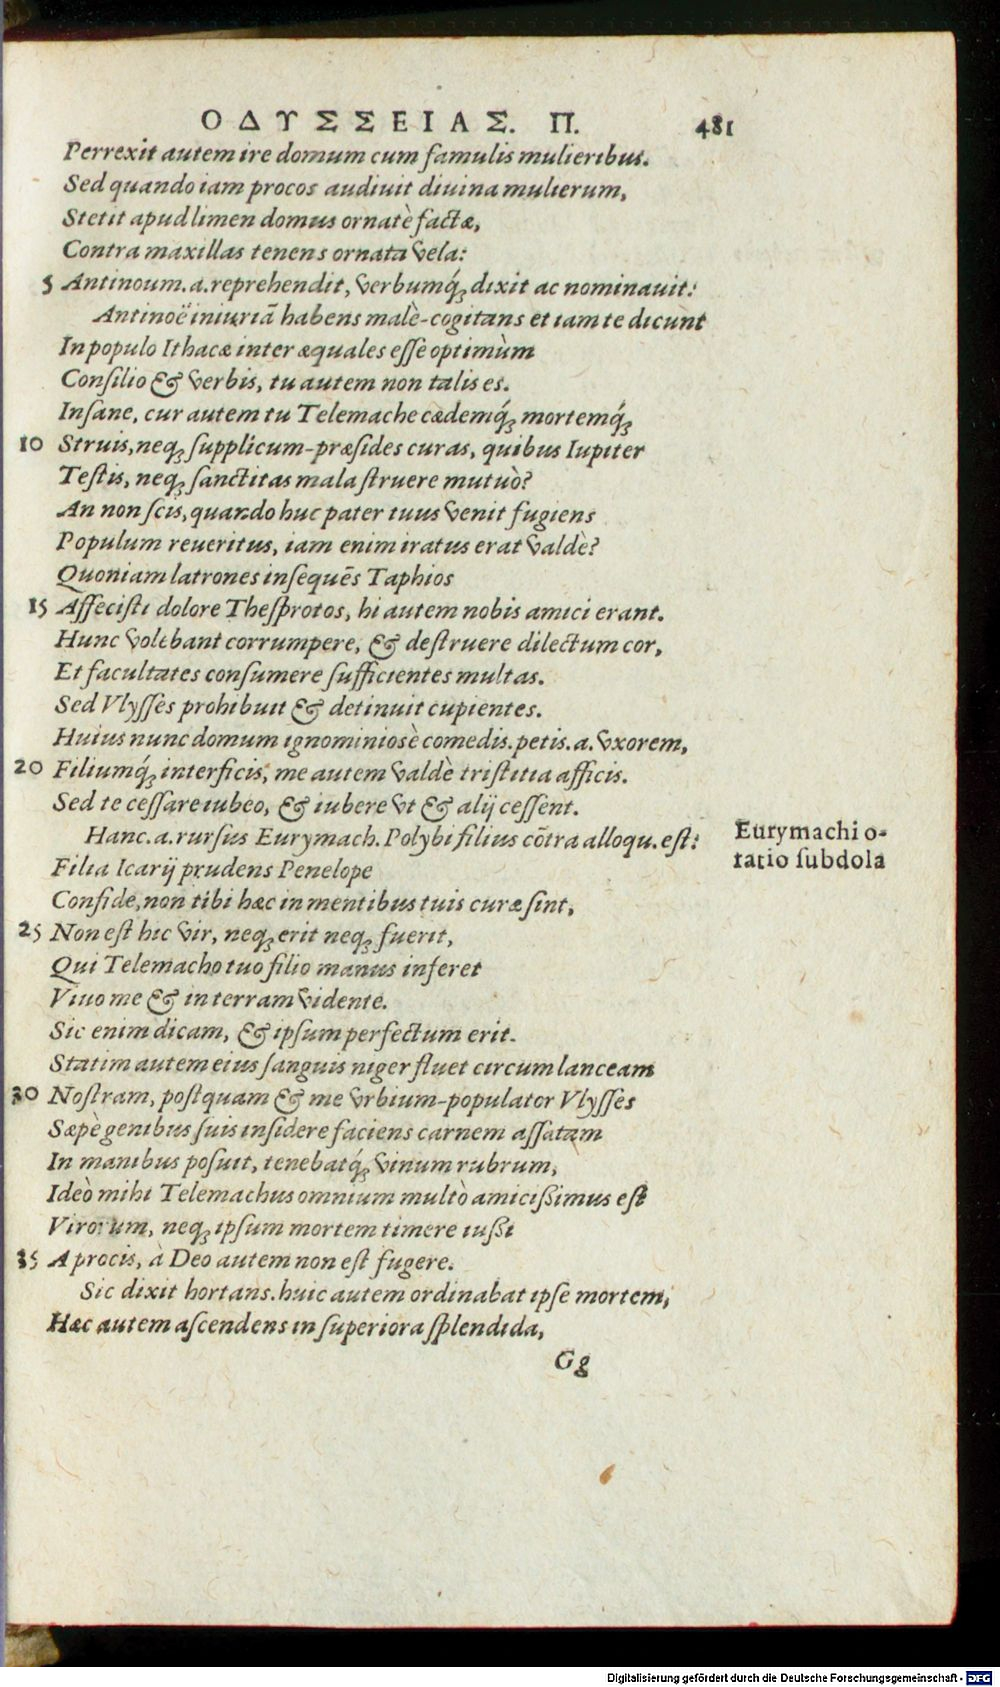 ΟΔΥΣΣΕΙΑΣ. Π. 481
Perrexit autem ire domum cum famulis mulieribus.
Sed quando iam procos audiuit diuina mulierum,
Stetit apud limen domus ornatè factæ,
Contra maxillas tenens ornata vela:
5 Antinoum.a.reprehendit, verbumq́; dixit ac nominauit:
Antinoë iniuriã habens malè-cogitans et iam te dicunt
In populo Ithacæ inter æquales esse optimùm
Consilio & verbis, tu autem non talis es.
Insane, cur autem tu Telemache cædemq́; mortemq́;
10 Struis, neq; supplicum-præsides curas, quibus Iupiter
Testis, neq; sanctitas mala struere mutuò?
An non scis, quando huc pater tuus venit fugiens
Populum reueritus, iam enim iratus erat valdè?
Quoniam latrones insequẽs Taphios
15 Affecisti dolore Thesprotos, hi autem nobis amici erant.
Hunc volebant corrumpere, & destruere dilectum cor,
Et facultates consumere sufficientes multas.
Sed Vlysses prohibuit & detinuit cupientes.
Huius nunc domum ignominiosè comedis.petis.a.vxorem,
20 Filiumq́; interficis, me autem valdè tristitia afficis.
Sed te cessare iubeo, & iubere vt & alij cessent.
Hanc.a.rursus Eurymach.Polybi filius cõtra alloqu.est:
Eurymachi o-
ratio subdola
Filia Icarij prudens Penelope
Confide, non tibi hæc in mentibus tuis curæ sint,
25 Non est hic vir, neq; erit neq; fuerit,
Qui Telemacho tuo filio manus inferet
Viuo me & in terram vidente.
Sic enim dicam, & ipsum perfectum erit.
Statim autem eius sanguis niger fluet circum lanceam
30 Nostram, postquam & me vrbium-populator Vlysses
Sæpè genibus suis insidere faciens carnem assatam
In manibus posuit, tenebatq́; vinum rubrum,
Ideò mihi Telemachus omnium multò amicißimus est
Virorum, neq; ipsum mortem timere iußi
35 A procis, à Deo autem non est fugere.
Sic dixit hortans.huic autem ordinabat ipse mortem,
Hæc autem ascendens in superiora splendida,
Gg
Digitalisierung gefördert durch die Deutsche Forschungsgemeinschaft - DFG